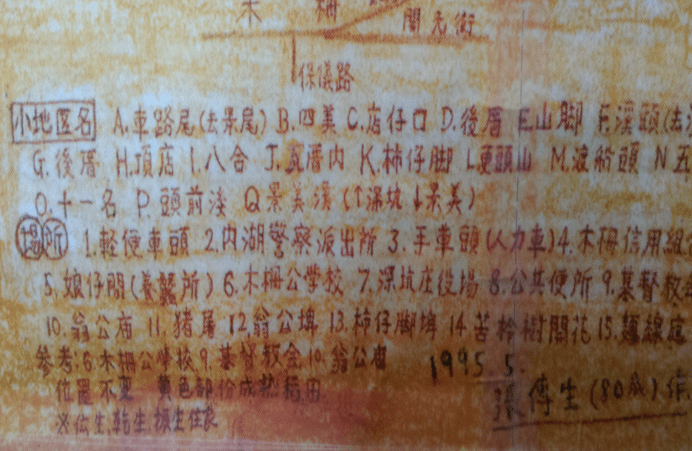 木柵
開元街
保儀路
小地区名 A.車路尾(去景尾) B.四美 C.店仔口 D.後厝 E.山脚 F.溪頭(去
G.後厝 H.頂店 I.八合 J.瓦厝内 K.柿仔脚 L.更頭山 M.渡船頭 N五
O.十一名 P.頭前淺 Q景美溪(↑深坑↓景美)
場所 1.輕便車頭 2.内湖警察派出所 3.手車頭(人力車)4.木柵信用組
5.娘仔間(養蠶所)6.木柵公學校 7.深坑庄役場 8.公共便所 9.基督教
10.翁公庙 11.猪屠 12.翁公埤 13.柿仔脚埤 14苦柃樹開花 15.麵線
參考:6.木柵公學校9.基督教会10.翁公庙
位置不變 黄色部份成熟稻田
※伝生,乾生,振生住家
1995.5.
張傳生(80歲)作